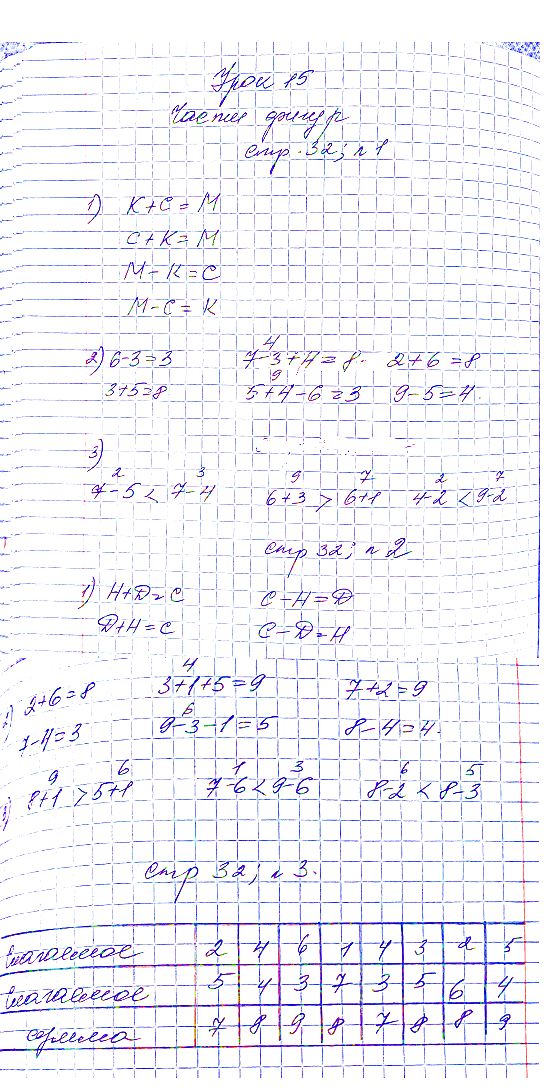 Урок 15
Части фигур
стр. 32; п 1
1) К+С = М
С+К = М
М - К = С
М - С = К
2) 6-3=3    7-3+4=8.    2+6=8
4
3+5=8    5+4-6=3    9-5=4.
9
3)
2    3    9    7    2    7
7-5 < 7-4    6+3 > 6+1    4-2 < 9-2
стр 32; п 2
1) Н+D=С    С-Н=D
D+Н=С    С-D=Н
4
2) 2+6=8    3+1+5=9    7+2=9
6
7-4=3    9-3-1=5    8-4=4.
9    6    1    3    6    5
3) 8+1 > 5+1    7-6 < 9-6    8-2 < 8-3
стр 32; п 3.
слагаемое 2 4 6 1 4 3 2 5
слагаемое 5 4 3 7 3 5 6 4
сумма 7 8 9 8 7 8 8 9